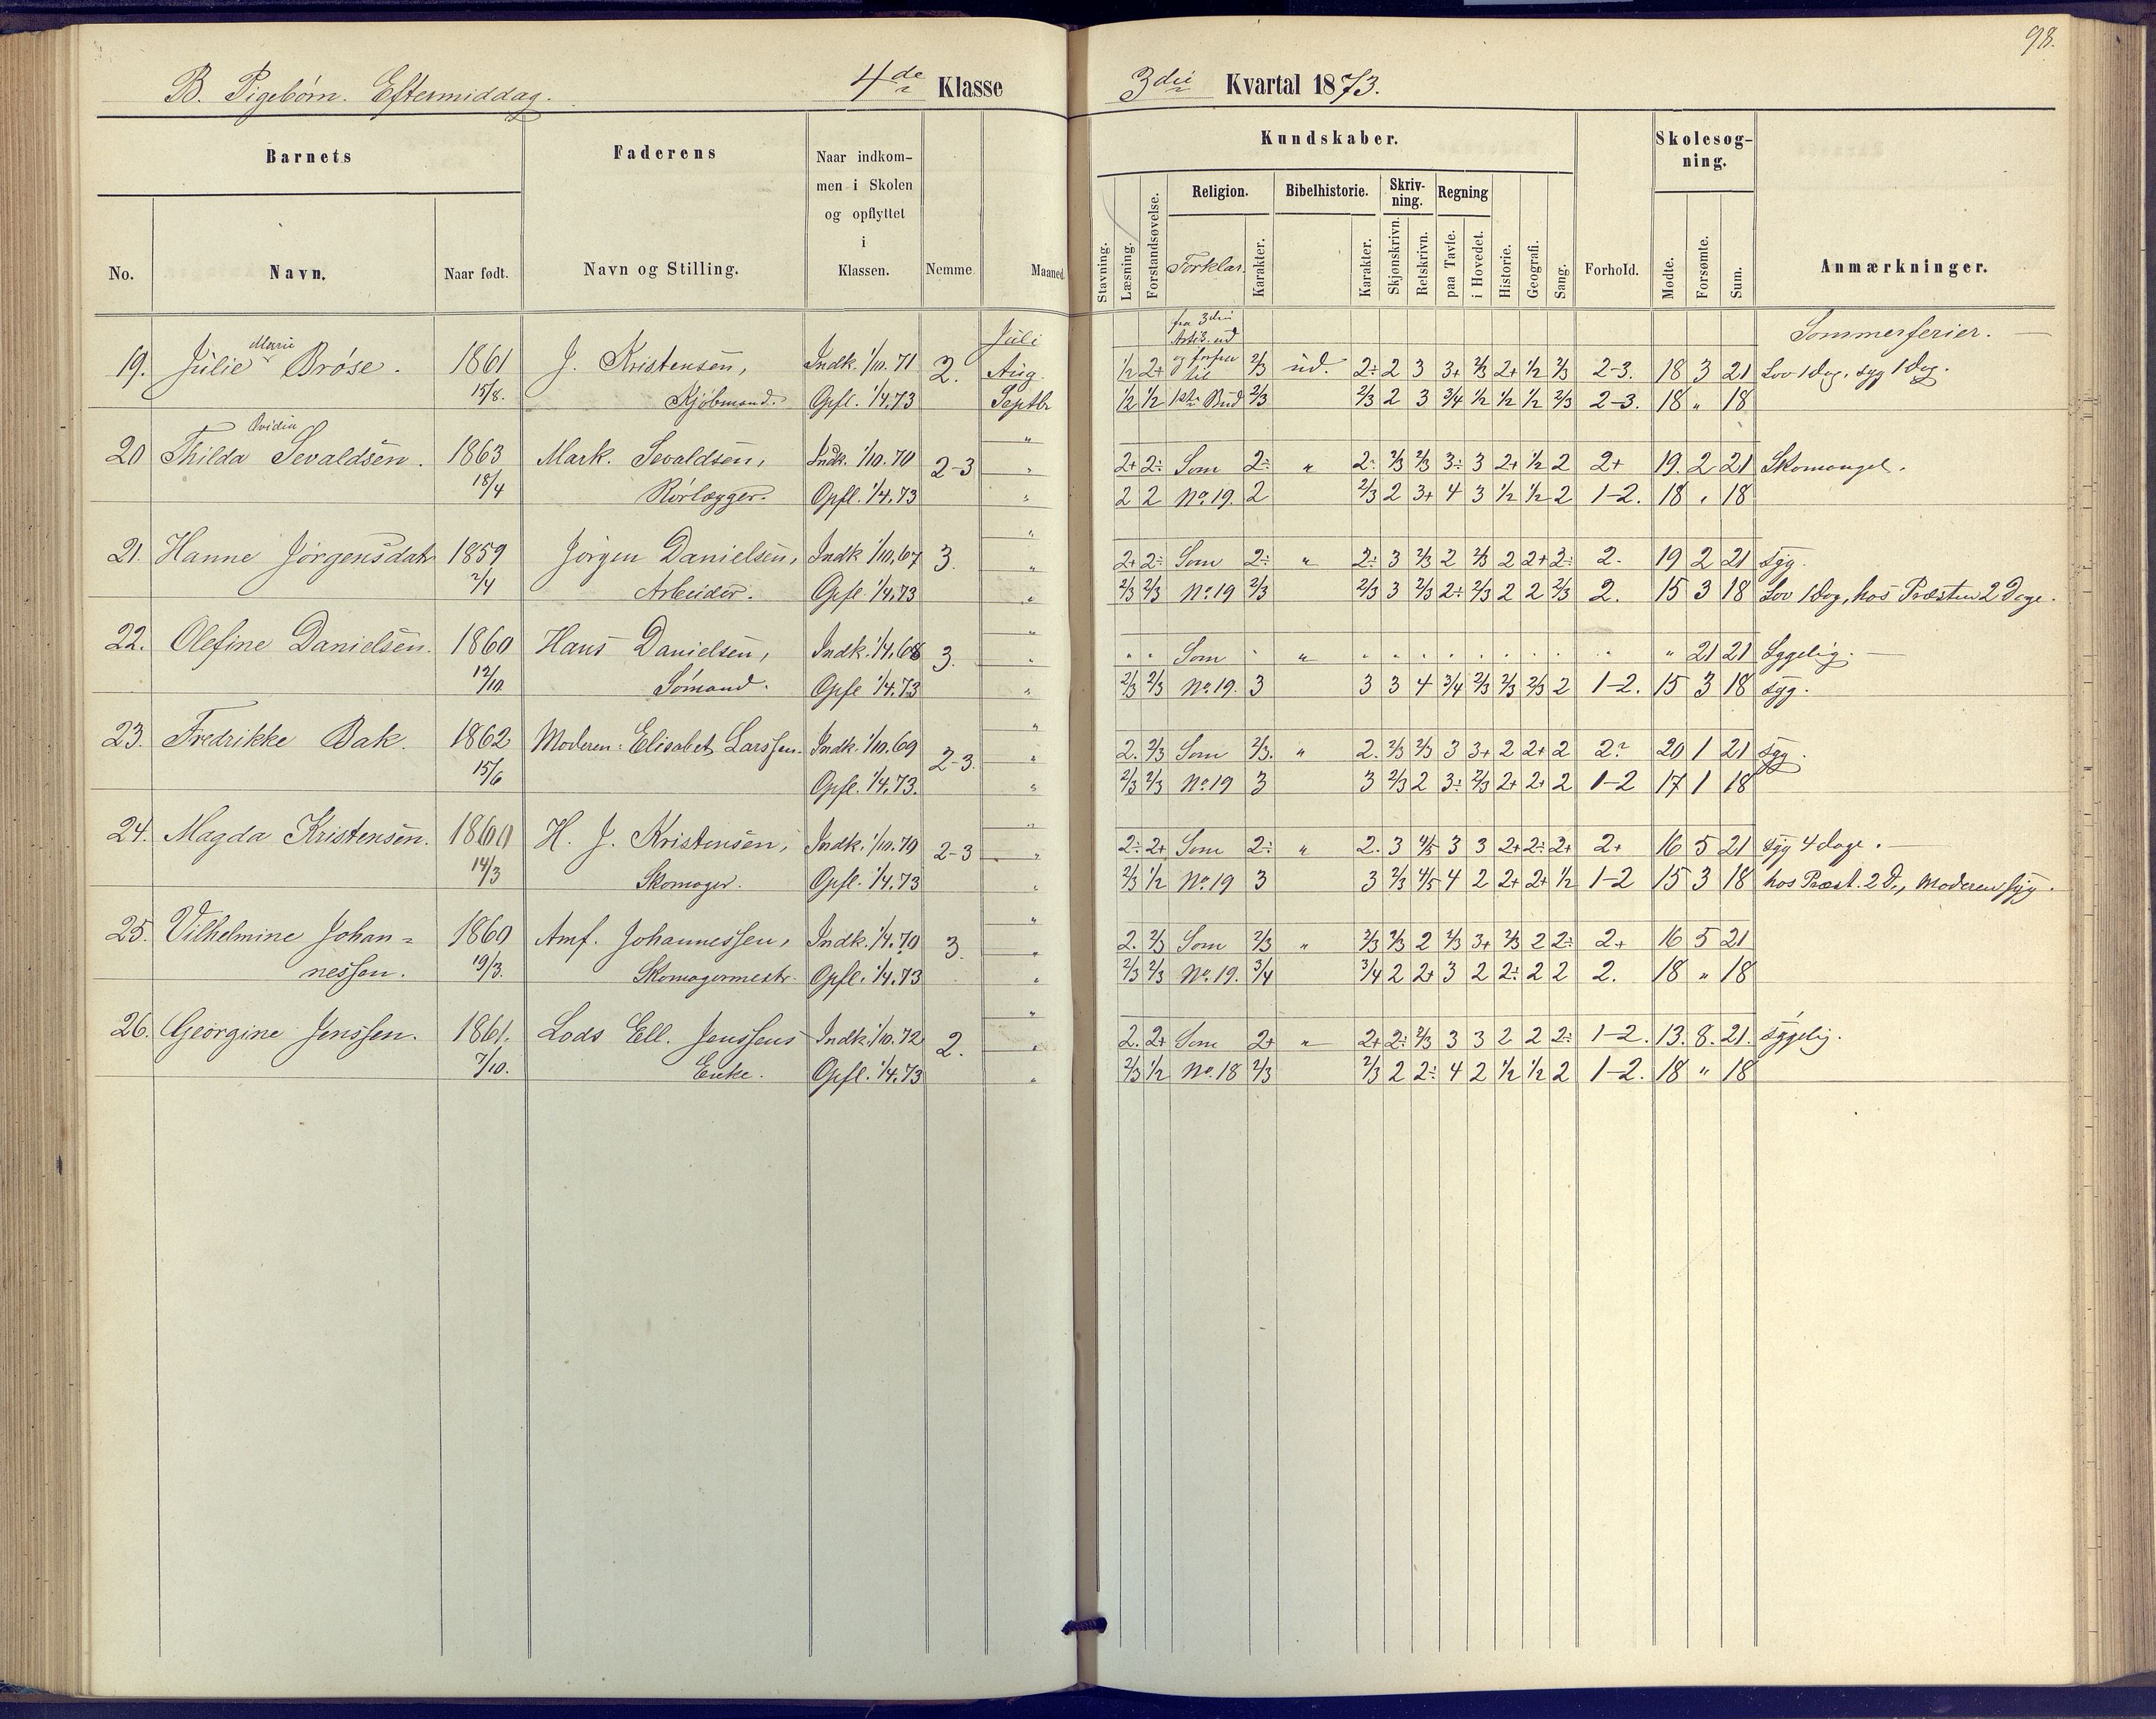 98.
B. Pigebørn. Eftermiddag. 4de Klasse 3die Kvartal 1873.
Barnets Faderens Naar indkom- Kundskaber. Skolesøg-
men i Skolen ning.
og opflyttet Religion. Bibelhistorie. Skriv- Regning
i ning.
No. Navn. Naar født. Navn og Stilling. Klassen. Nemme. Maaned. Stavning. Læsning. Forstandsøvelse. Forklar. Karakter. Karakter. Skjønskrivn. Retskrivn. paa Tavle. i Hovedet. Historie. Geografi. Sang. Forhold. Mødte. Forsømte. Sum. Anmærkninger.
Juli fra 3die Sommerferier.
Marie Art. 3. ud
19. Julie Brøse. 1861 J. Kristensen, Indk. 1/10. 71 2. Aug. 1/2 2+ og forfra til 2/3 ud. 2÷ 2 3 3+ 2/3 2+ 1/2 2/3 2-3. 18 3 21 Lov 1 dag, syg 1 dag.
15/8. Kjøbmand. Opfl. 1/4. 73 Septbr 1/2 1/2 1ste Bud 2/3 2/3 2 3 3/4 1/2 1/2 1/2 2/3 2-3. 18 " 18
Ovidia "
20 Thilda Sevaldsen. 1863 Mark. Sevaldsen, Indk. 1/10. 70 2-3 " 2+ 2÷ Som 2÷ " 2÷ 2/3 2/3 3÷ 3 2+ 1/2 2 2+ 19. 2 21 Skomangel.
18/4 Rørlægger. Opfl. 1/4. 73 " 2 2 No. 19. 2 2/3 2 3+ 4 3 1/2 1/2 2 1-2. 18 " 18
"
21. Hanne Jørgensdatr 1859 Jørgen Danielsen, Indk 1/10, 67 3. " 2+ 2÷ Som 2÷ " 2÷ 3 2/3 2 2/3 2 2+ 2÷ 2. 19 2 21 syg.
2/4 Arbeider. Opfl. 1/4. 73 " 2/3 2/3 No. 19 2/3 2/3 3 2/3 2÷ 2/3 2 2 2/3 2. 15 3 18 Lov 1 dag, hos Præsten 2 Dage.
"
22. Olefine Danielsen. 1860 Hans Danielsen, Indk. 1/4. 68 3. " " " Som " " " " " " " " " " " " 21 21 Sygelig.
12/10. Sømand. Opfl. 1/4. 73 " 2/3 2/3 No. 19. 3 3 3 4 3/4 2/3 2/3 2/3 2 1-2. 15 3 18 syg.
"
23. Fredrikke Bak. 1862 Moderen: Elisabet Larssen. Indk. 1/10. 69 2-3. " 2. 2/3 Som 2/3. " 2. 2/3 2/3 3 3+ 2 2+ 2 2? 20 1 21 syg.
15/6 Opfl. 1/4. 73. " 2/3 2/3 No. 19 3 3 2/3 2 3÷ 2/3 2+ 2+ 2 1-2 17 1 18
"
24. Magda Kristensen. 1860 H. J. Kristensen, Indk. 1/10. 70 2-3 " 2÷ 2+ Som 2÷ " 2. 3 4/5 3 3 2+ 2÷ 2+ 2+ 16 5 21 syg 4 dage.
14/3 Skomager. Opfl. 1/4. 73 " 2/3 1/2 No. 19 3 3 2/3 4/5 4 2 2+ 2+ 1/2 1-2 15 3 18 hos Præst. 2 D., Moderen syg.
"
25. Vilhelmine Johan= 1860 Amf. Johannessen, Indk. 1/4. 70 3. " 2. 2/3 Som 2/3 " 2/3 2/3 2 2/3 3+ 2/3 2 2÷ 2+ 16 5 21
nessen. 19/3. Skomagermestr. Opfl. 1/4. 73 " 2/3 2/3 No. 19. 3/4 3/4 2 2+ 3 2 2÷ 2 2 2. 18 " 18
"
26. Georgine Jenssen. 1861. Lods Ell. Jenssens Indk. 1/10. 72 2. " 2. 2+ Som 2+ " 2+ 2÷ 2/3 3 3 2 2 2÷ 1-2. 13. 8. 21. sygelig.
7/10. Enke. Opfl. 1/4. 73 " 2/3 1/2 No. 18 2/3 2/3 2 2÷ 4 2 1/2 1/2 2 1-2. 18 " 18